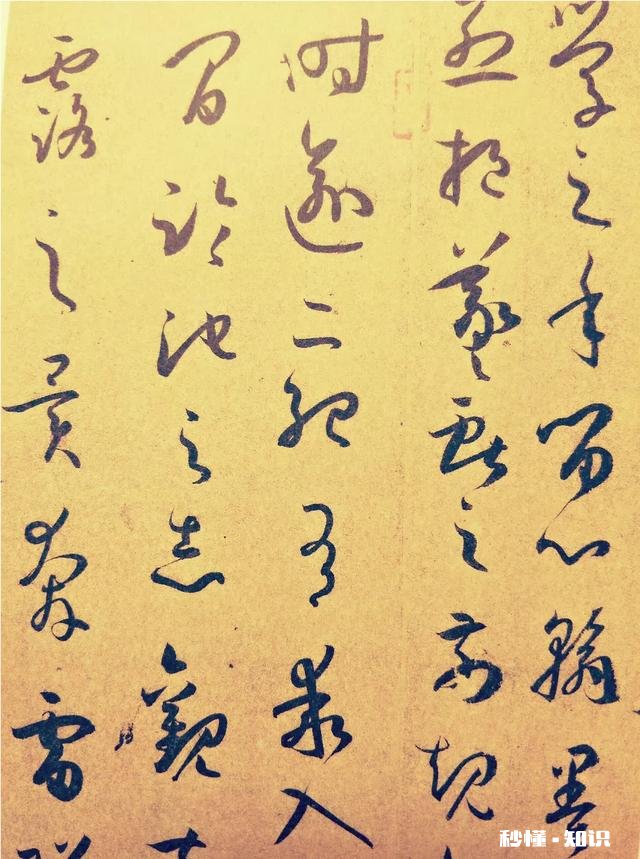 學之年留心翰墨
烈挹羲獻之前規
時逾二紀有乖入
間臨池之志觀
露之異奔雷
秒懂·知识